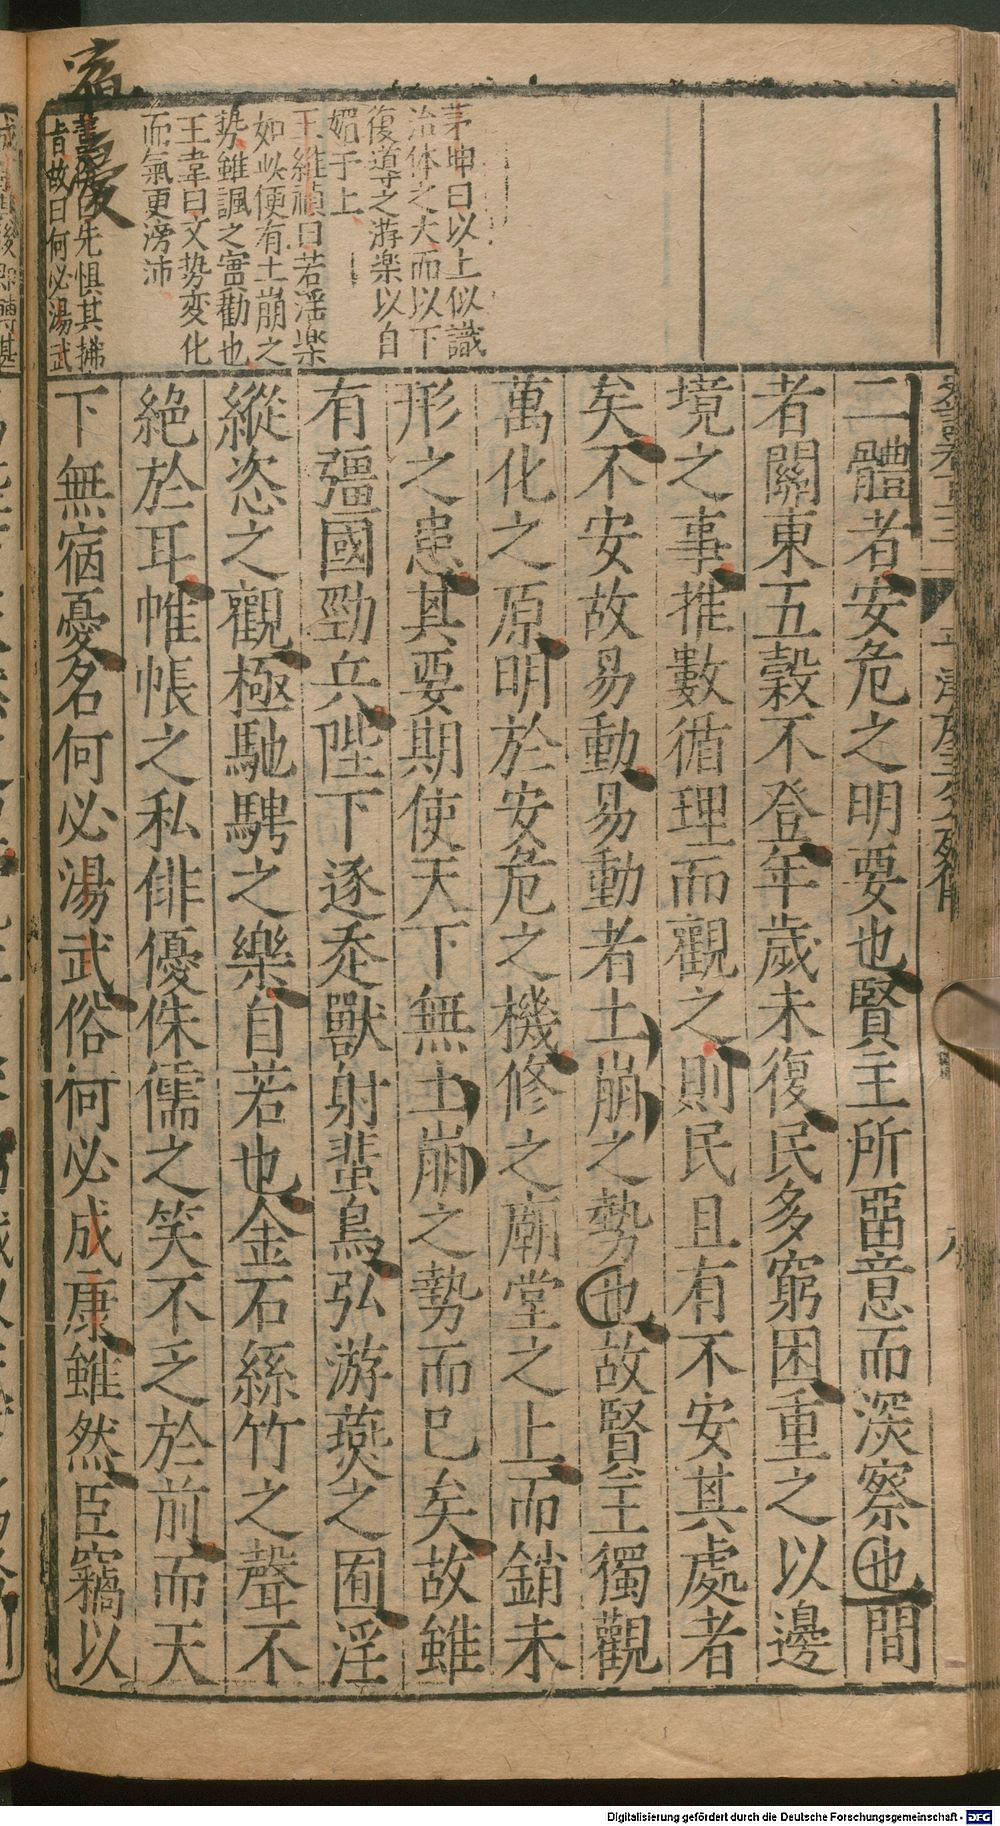 茅坤曰以上似識
治体之大而以下
復導之游楽以自
媚于上
王維禎曰若淫楽
如此便有土崩之
勢雖諷之實勸也
王韋曰文势変化
而氣更滂沛
曰先惧其拂
旨故曰何必湯武
二體者安危之明要也賢主所畱意而深察也間
者關東五穀不登年歲未復民多窮困重之以邊
境之事推數循理而觀之則民且有不安其處者
矣不安故易動易動者土崩之勢也故賢主獨觀
萬化之原明於安危之機修之廟堂之上而銷未
形之患其要期使天下無土崩之勢而已矣故雖
有彊國勁兵陛下逐走獸射蜚鳥弘游燕之囿淫
縱恣之觀極馳騁之樂自若也金石絲竹之聲不
絕於耳帷帳之私俳優侏儒之笑不乏於前而天
下無宿憂名何必湯武俗何必成康雖然臣竊以
宿憂
Digitalisierung gefördert durch die Deutsche Forschungsgemeinschaft - DFG